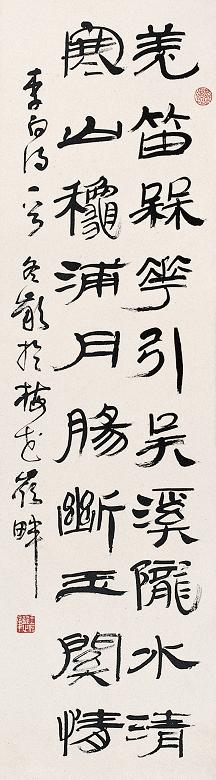 羌笛槑華引吳溪隴水清
寒山龝浦月腸斷玉關情
李白詩一首 冬齡於梅花嶺畔